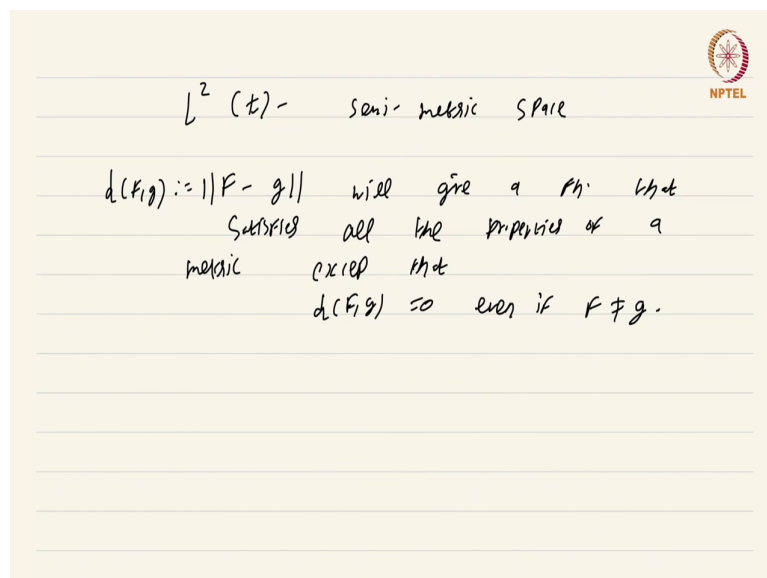 NPTEL
L² (t) - semi-metric space
d(F,g) := ||F - g|| will give a fn. that
satisfies all the properties of a
metric except that
d(F,g) =0 even if F ≠ g.